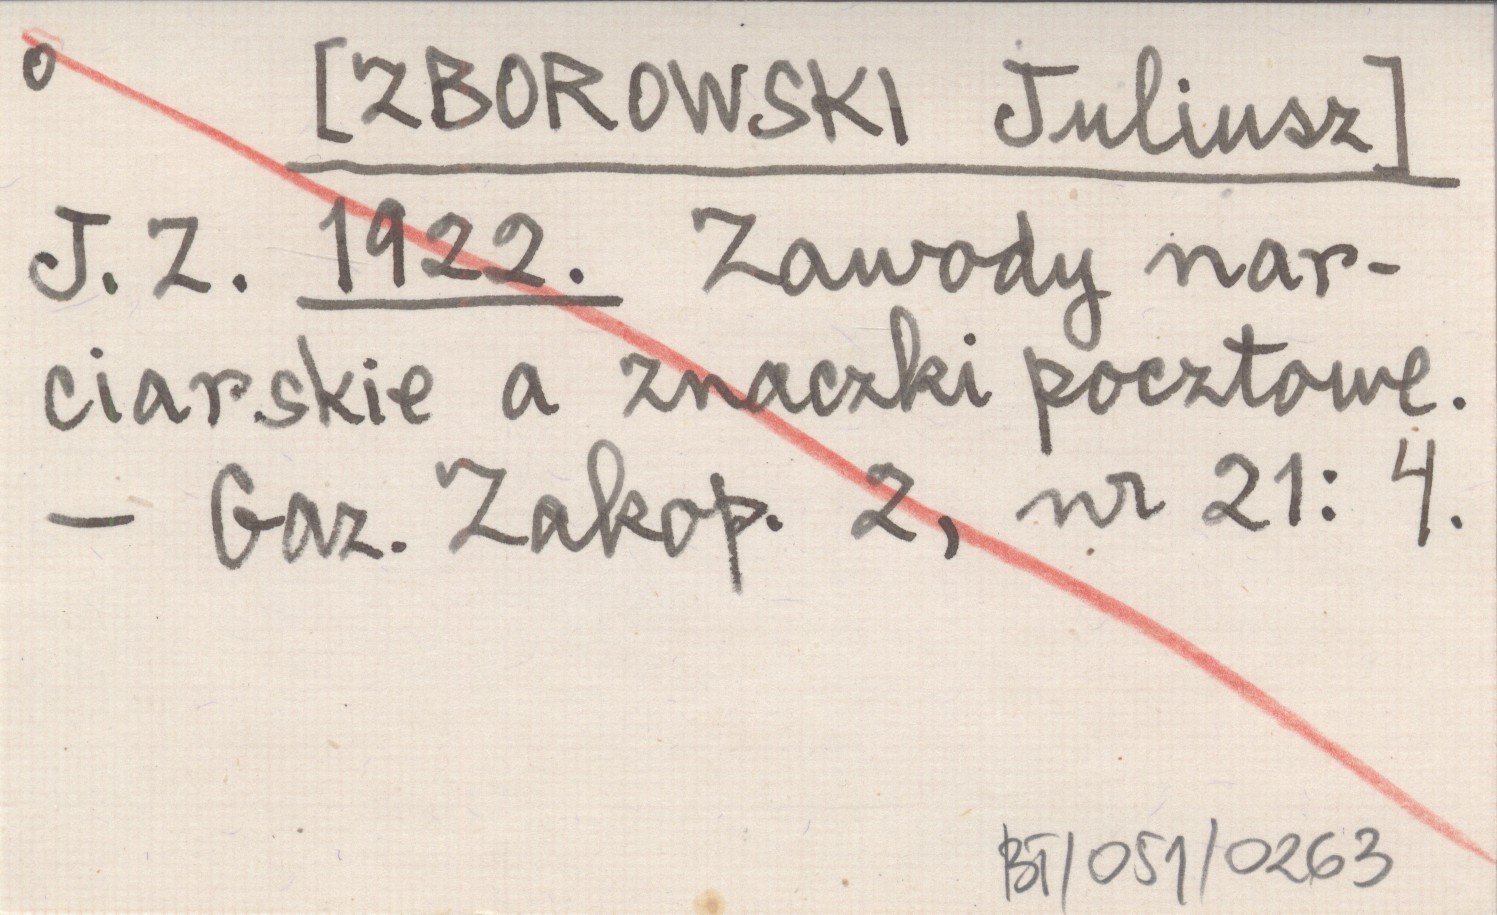 o [ZBOROWSKI Juliusz]
J. Z. 1922. Zawody nar-
ciarskie a znaczki pocztowe.
— Gaz. Zakop. 2, nr 21: 4.
BT/051/0263